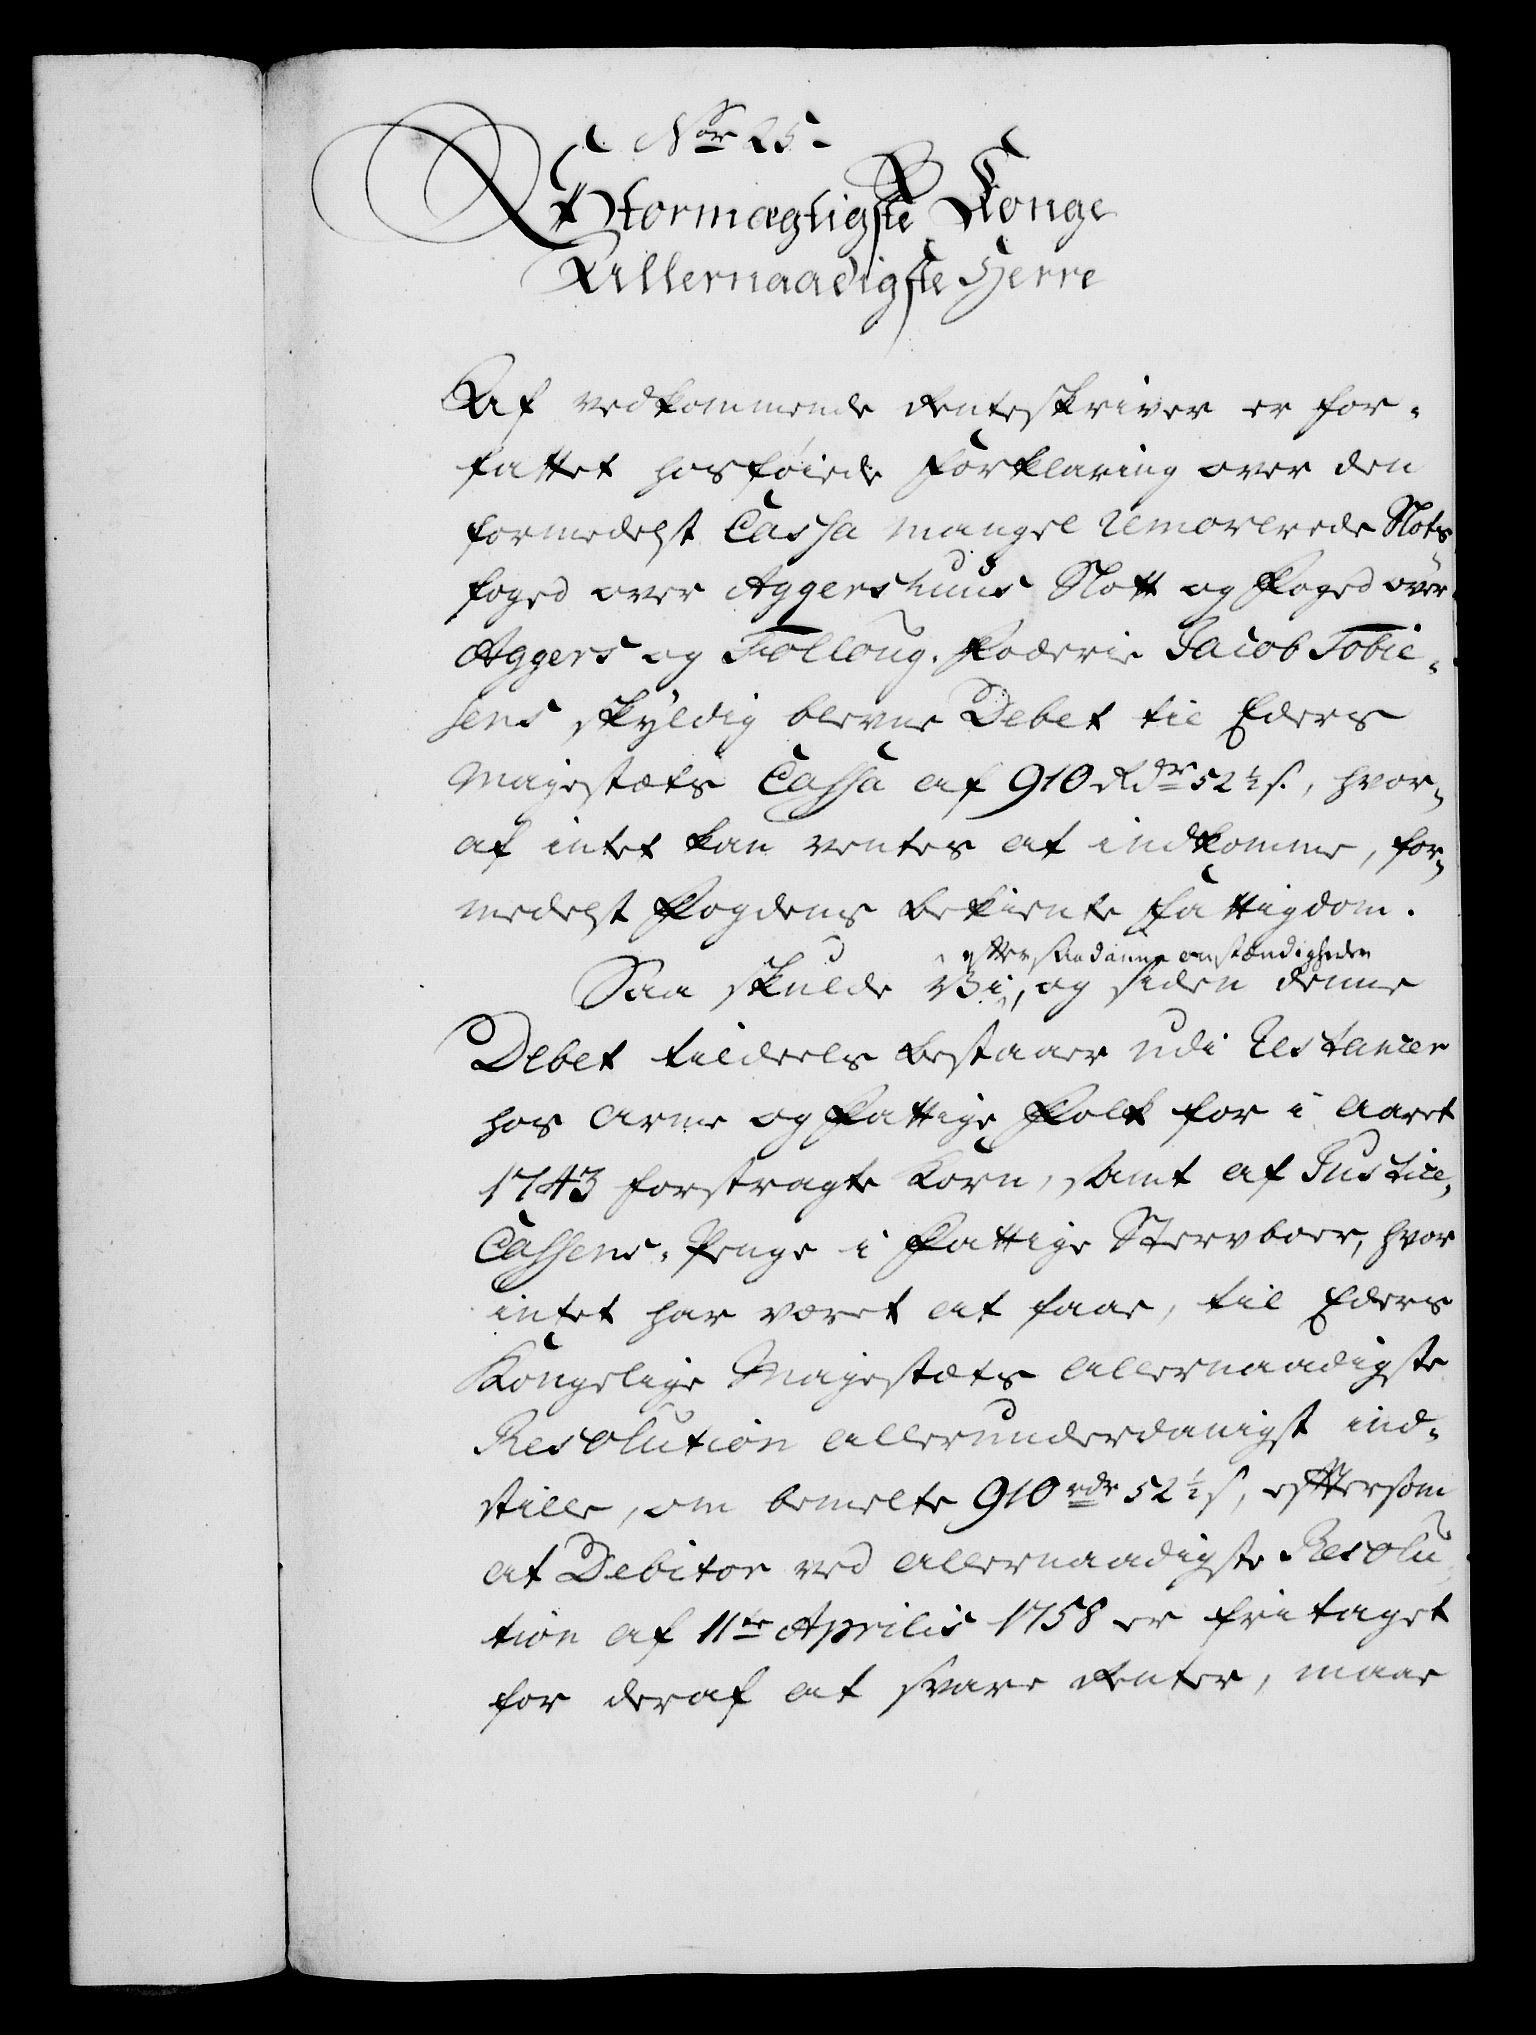 Nor 25-
Stormægtigste Konge
Allernaadigste Herre
Af vedkommende Renteskriver er for-
fattet hosføiede Forklaring over den
formedelst Cassa mangel removerede Slots-
foged over Aggershuus Slott og Foged over
Aggers og Folloug-Foderie Jacob Tobie-
sens skyldig blevne Debet til Eders
Majestæts Cassa af 910 Rdr 52½ s., hvor-
af intet kan ventes at indkomme, for-
medelst Fogdens bekiente fattigdom.
efter saadanne omstændigheder
Saa skulde Vi, og siden denne
Debet tildeels bestaaer udi Restancer
hos arme og Fattige Folk for i Aaret
1743 forstragte Korn, samt af Justice-
Cassens-Penge i Fattige Stervboer, hvor
intet har været at faae, til Eders
Kongelige Majestæts allernaadigste
Resolution allerunderdanigst ind-
stille, om bemelte 910 rdr 52½ s, eftersom
at Debitor ved allernaadigste Resolu-
tion af 11te Aprilis 1758 er fritaget
for deraf at svare Renter, maae